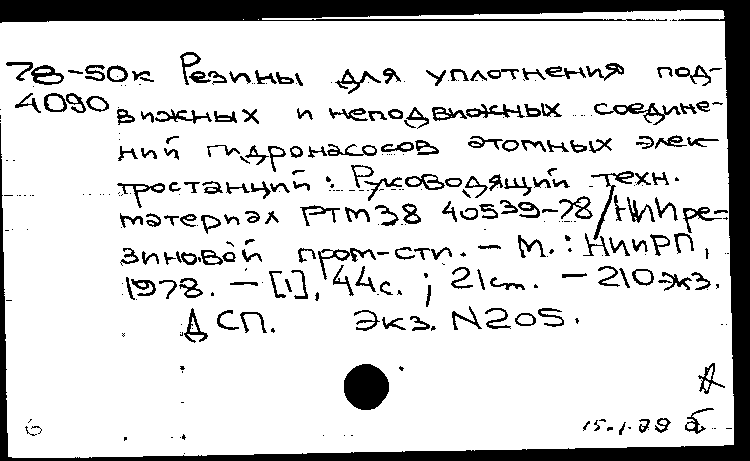 78-50к Резины для уплотнения под-
4090 вижных и неподвижных соедине-
ний гидронасосов атомных элек-
тростанций: Руководящий техн.
материал РТМ38 40539-78/НИИ ре-
зиновой пром-сти. – М.: НИИРП,
1978. – [1], 44с. ; 21 см. – 210 экз.
ДСП. Экз. N205.
6 15.1.79